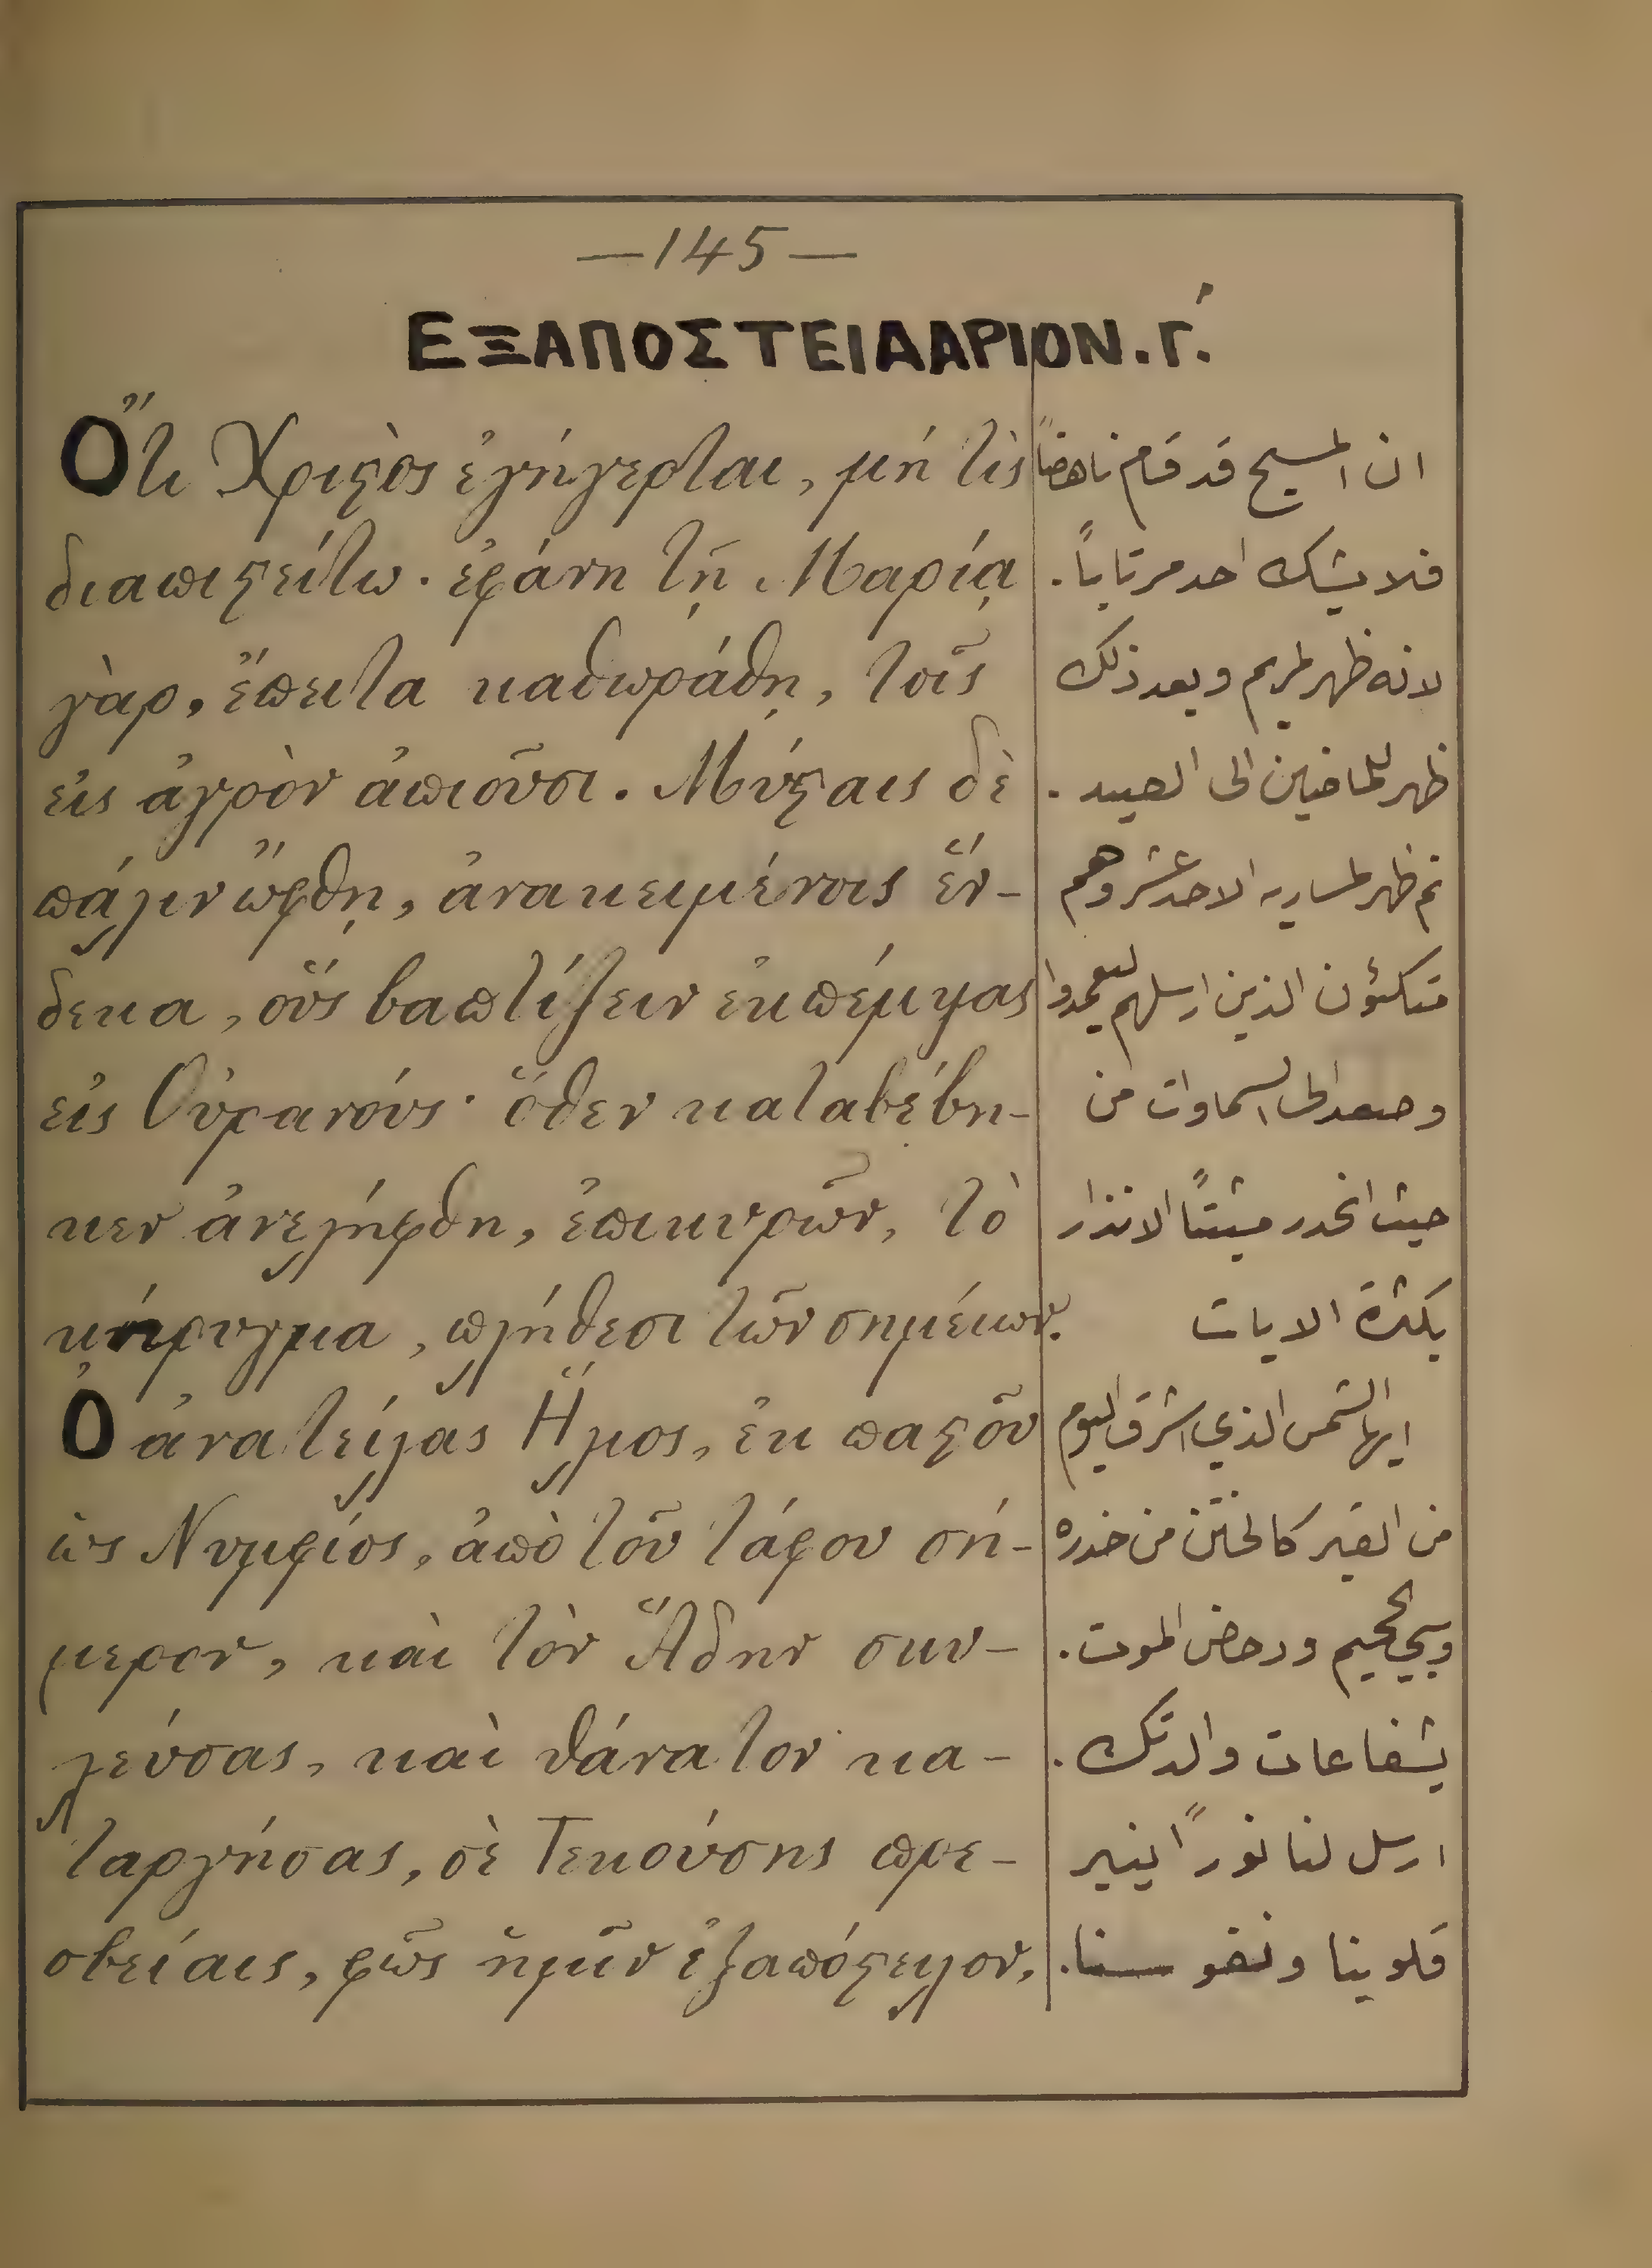 —145—
ΕΞΑΠΟΣΤΕΙΛΑΡΙΟΝ. Γ΄.
Ὅτι Χριστὸς ἐγήγερται, μή τὶς
διαπιστείτω. ἐφάνη τῇ Μαρίᾳ
γὰρ, ἔπειτα καθωράθη, τοῖς
εἰς ἀγρὸν ἀπιοῦσι. Μύσταις δὲ
πάλιν ὤφθη, ἀνακειμένοις ἕν-
δεκα, οὓς βαπτίζειν ἐκπέμψας
εἰς Οὐρανούς· ὅθεν καταβέβη-
κεν ἀνελήφθη, ἐπικυρῶν, τὸ
κήρυγμα, πλήθεσι τῶν σημείων.
Ὁ ἀνατείλας Ἥλιος, ἐκ παστοῦ
ὡς Νυμφίος, ἀπὸ τοῦ τάφου σή-
μερον, καὶ τὸν ᾍδην σκυ-
λεύσας, καὶ θάνατον κα-
ταργήσας, σὲ Τεκούσης πρε-
σβείαις, φῶς ἡμῖν ἐξαπόστειλον,
ان المسيح قد قام ناهضاً
فلا يشك احد مرتاباً.
لانه ظهر لمريم وبعد ذلك
ظهر للماضين الى الصيد.
ثم ظهر لساريه الاحد عشر وهم
متكئون الذين ارسلهم ليعمدوا
وصعد الى السماوات من
حيث انحدر مثبتاً الانذار
بكثرة الايات
ايها الشمس الذي اشرق اليوم
من القبر كالختن من خدره
وسبى الجحيم ودحض الموت.
بشفاعات والدتك.
ارسل لنا نوراً ينير
قلوبنا ونفوسنا.